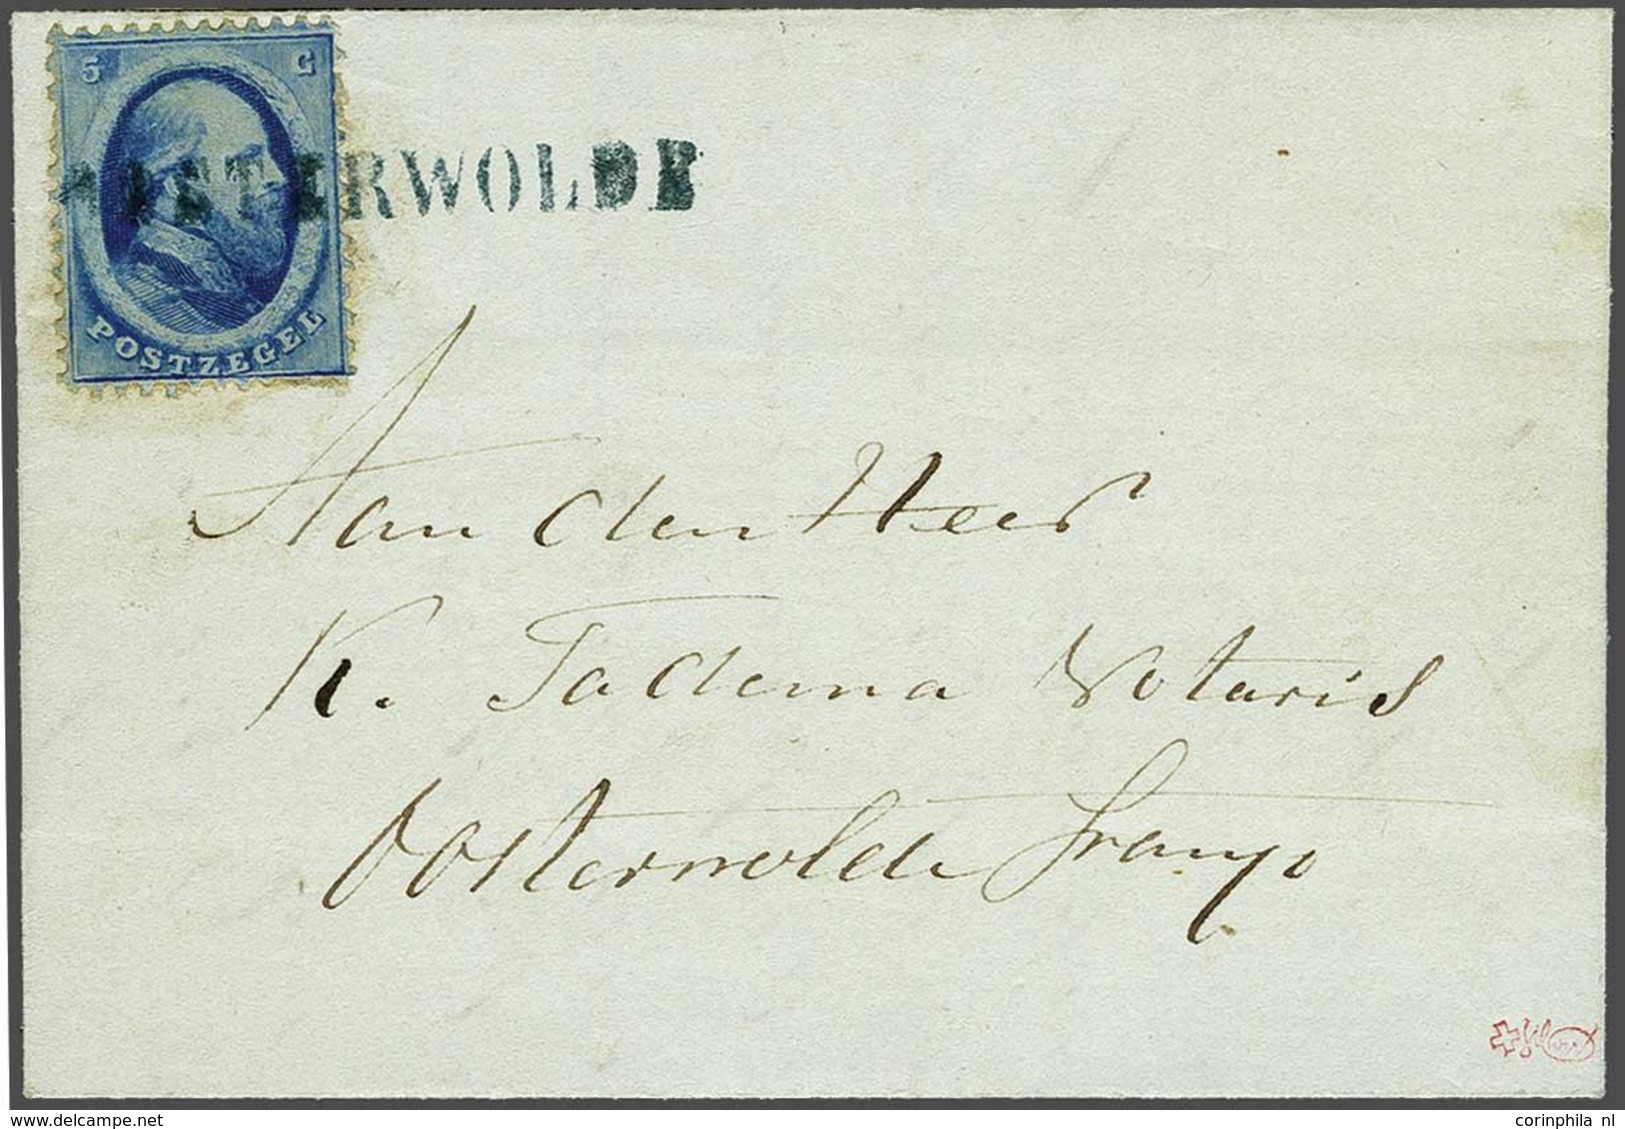 5 C
POSTZEGEL
OOSTERWOLDE
Aan den Heer
K. Tadema Notaris
Oosterwolde franço
www.delcampe.net
corinphila nl